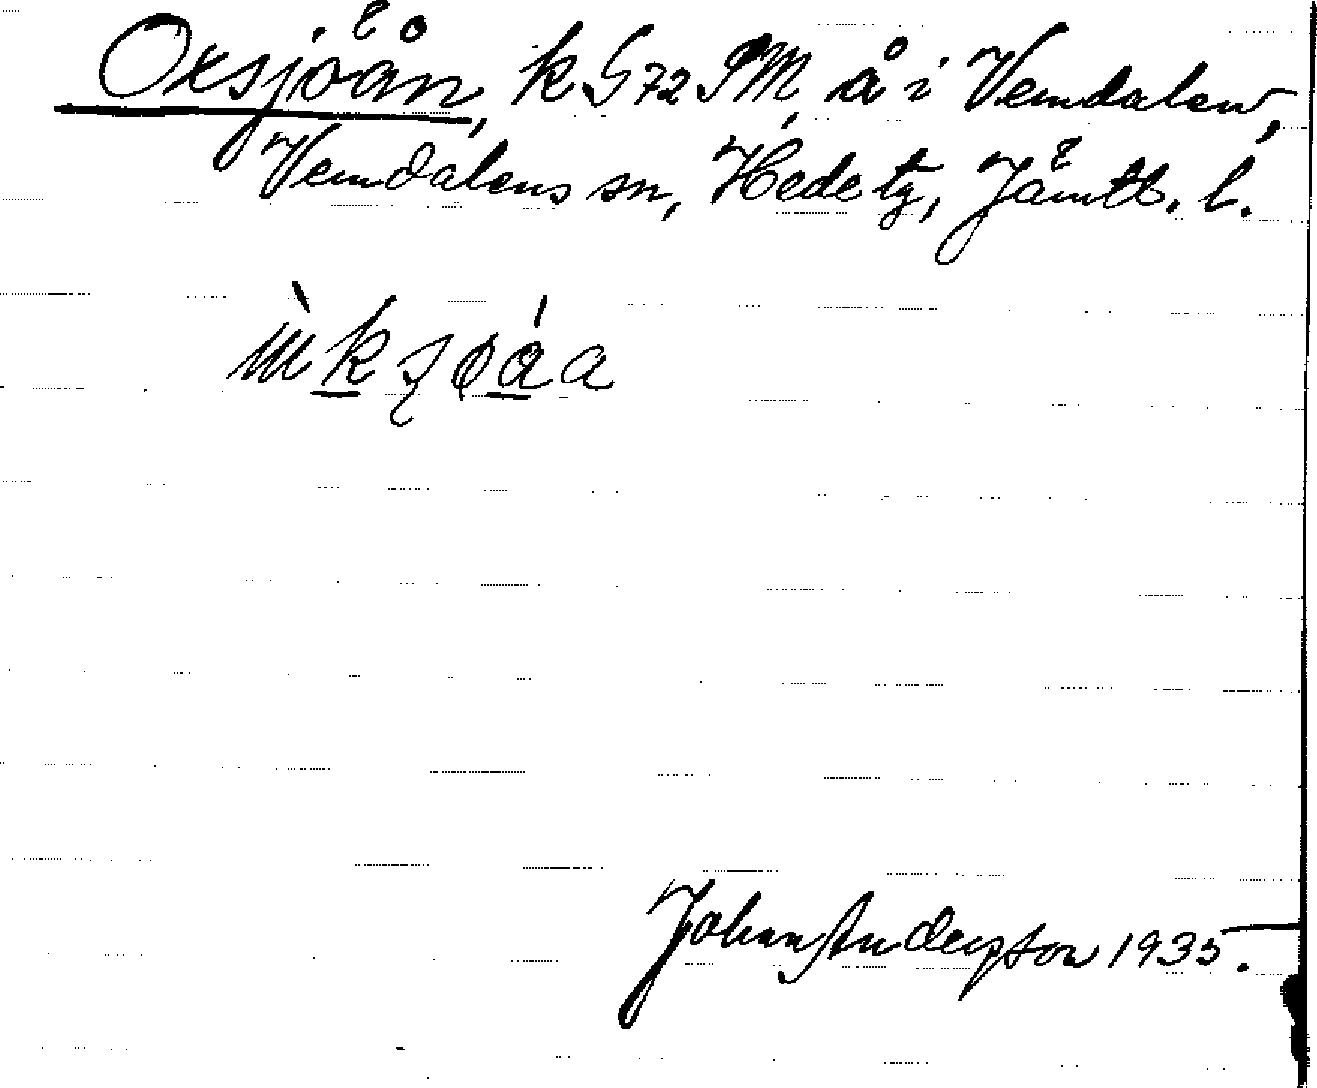 Oxsjöån, k. G72 SM, å i Vemdalen,
Vemdalens sn, Hede tg, Jämtl. l.
Johan Anderson 1935.